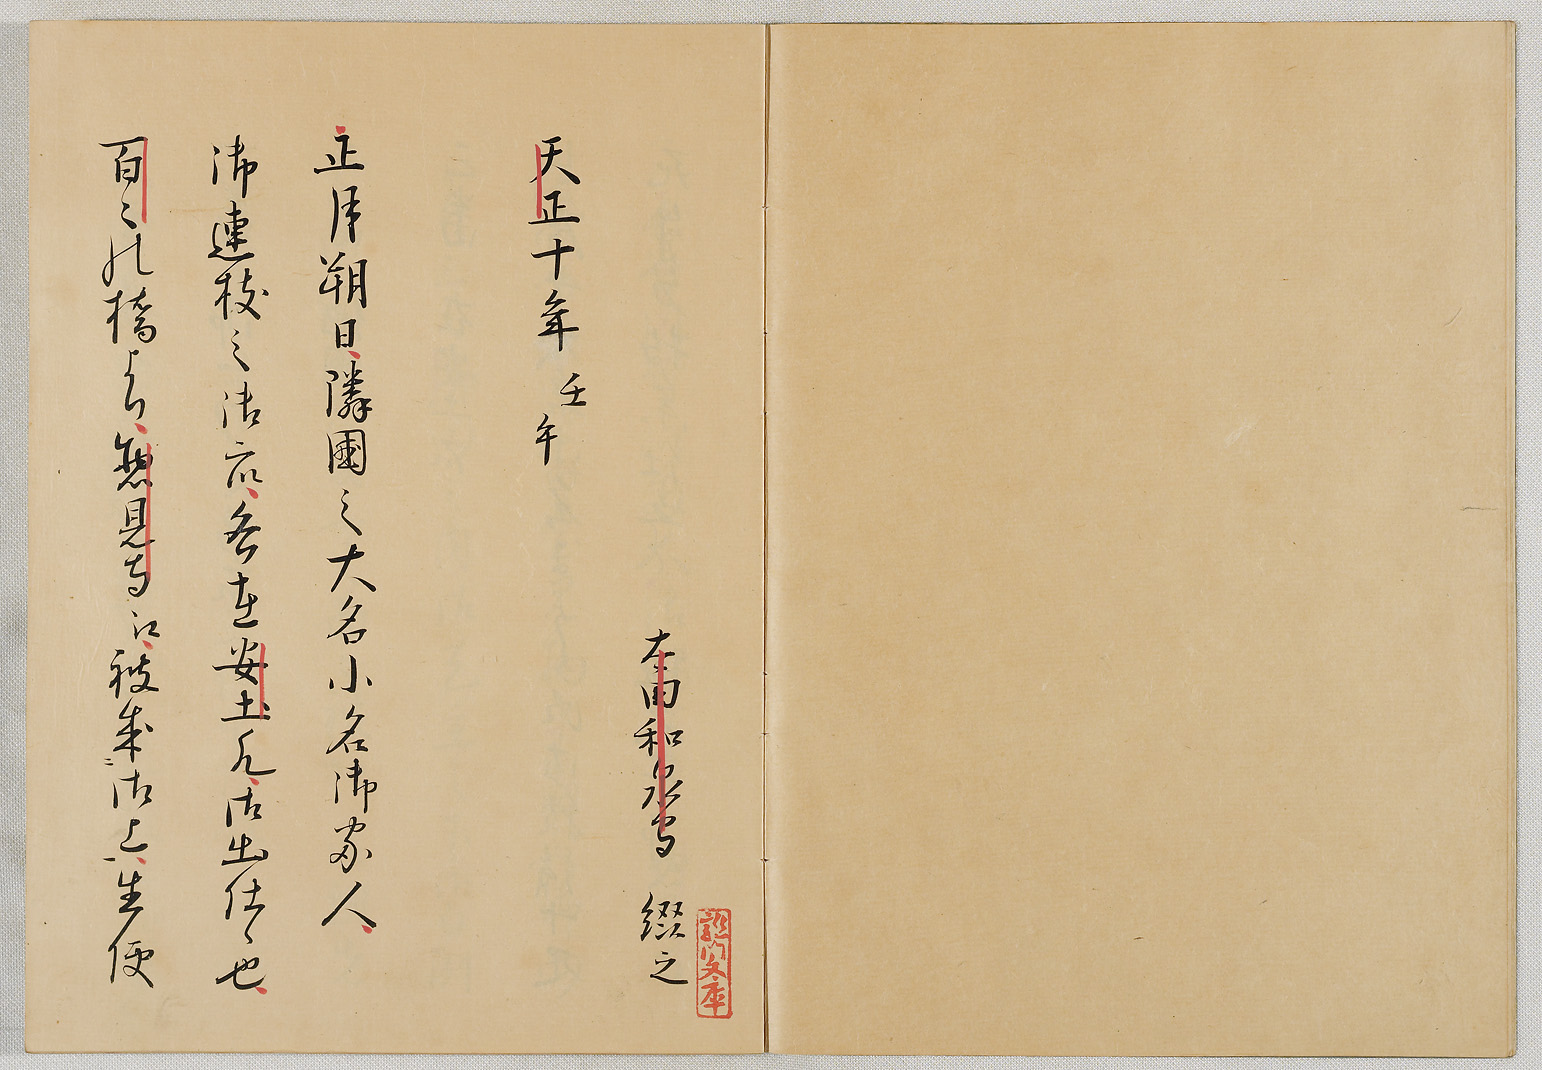 太田和泉守 綴之
龍門文庫
天正十年 壬午
正月朔日隣國之大名小名御家人
御連枝之御衆各在安土 御出仕 也
百々の橋より惣見寺江被成御上生便